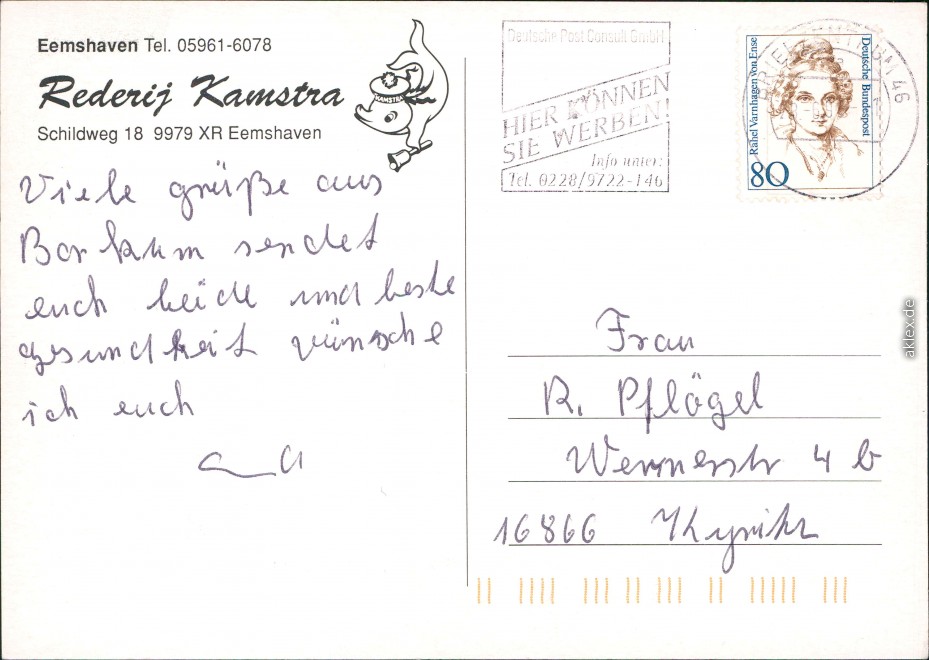 Eemshaven Tel. 05961-6078
Rederij Kamstra
Schildweg 18 9979 XR Eemshaven
KAMSTRA
Viele grüße aus
Borkum sendet
euch beide und beste
gesundheit wünsche
ich euch
Deutsche Post Consult GmbH
HIER KÖNNEN
SIE WERBEN!
Info unter:
Tel. 0228/9722-146
Rahel Varnhagen von Ense
Deutsche Bundespost
80
BRIEFZENTRUM 46
Frau
R. Pflögel
Wernerstr 4 b
16866 Kyritz
aklex.de